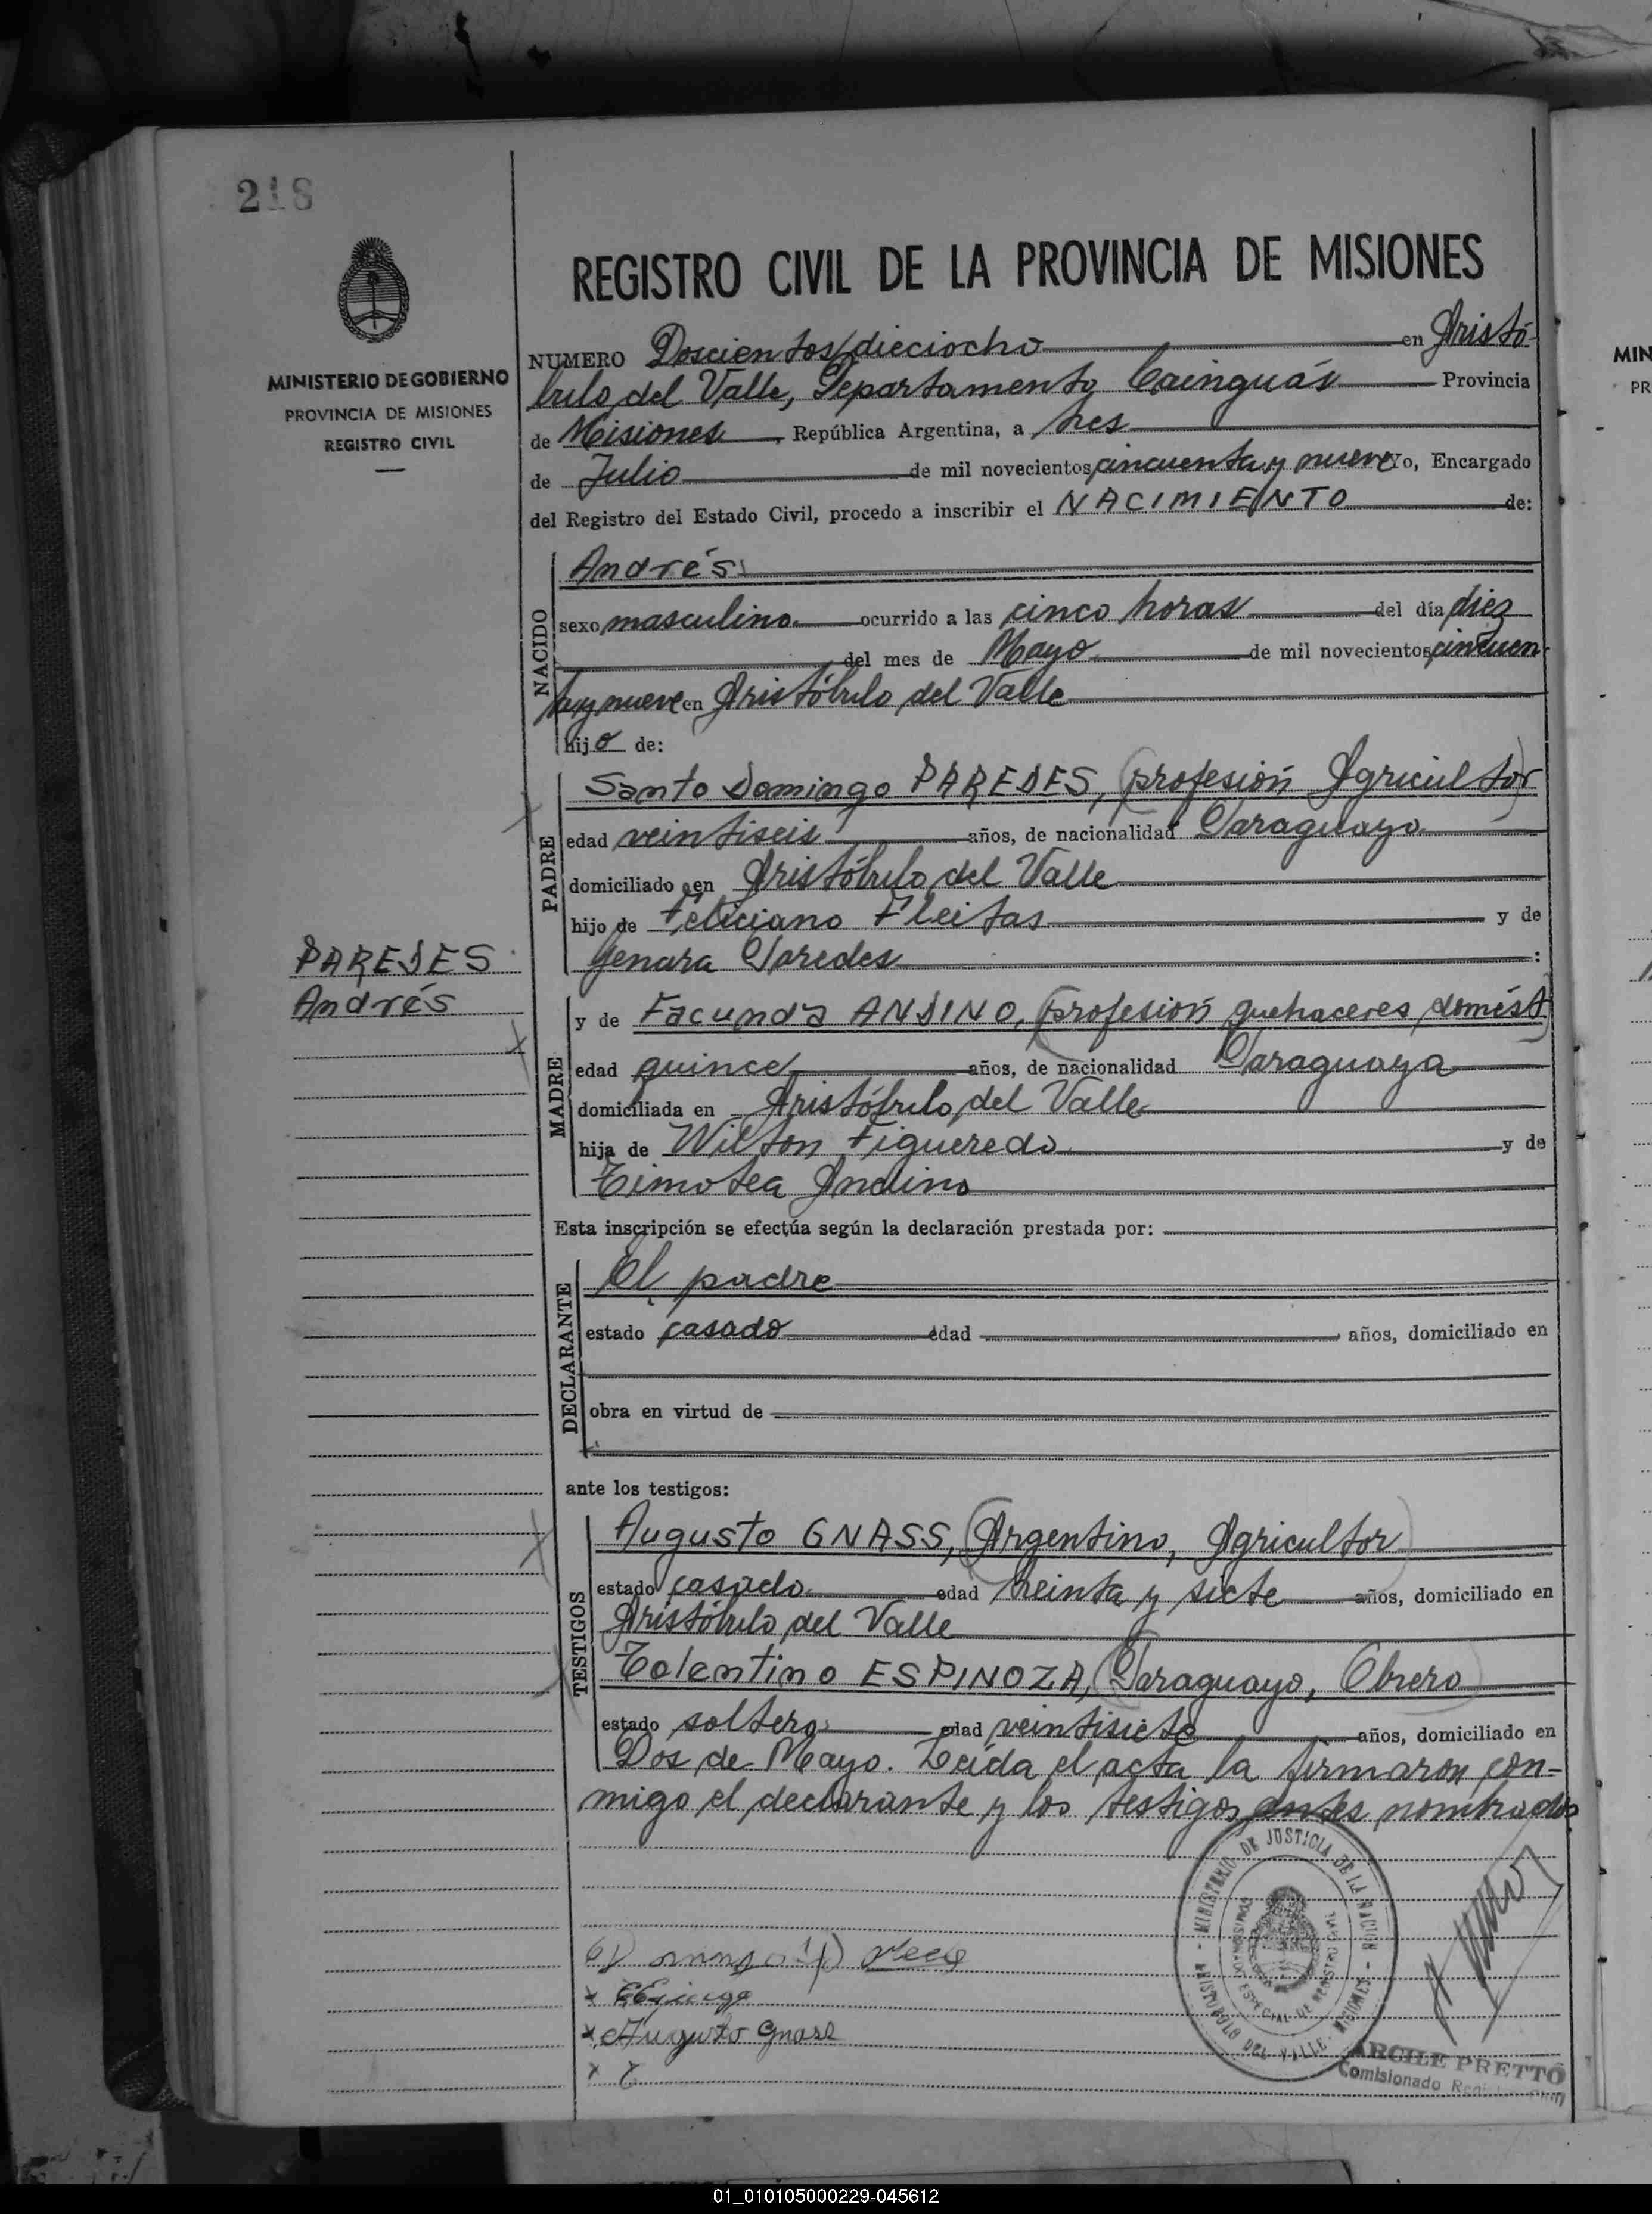 218
MINISTERIO DE GOBIERNO
PROVINCIA DE MISIONES
REGISTRO CIVIL
REGISTRO CIVIL DE LA PROVINCIA DE MISIONES
NUMERO Doscientos dieciocho en Aristó-
bulo del Valle, Departamento Cainguás Provincia
de Misiones, República Argentina, a tres
de Julio de mil novecientos cincuenta y nueve Yo, Encargado
del Registro del Estado Civil, procedo a inscribir el NACIMIENTO de:
NACIDO
Andrés
sexo masculino ocurrido a las cinco horas del día diez
del mes de Mayo de mil novecientos cincuen
ta y nueve en Aristóbulo del Valle
hijo de:
PADRE
Santo Domingo PAREDES, (profesión Agricultor)
edad veintiseis años, de nacionalidad Paraguayo
domiciliado en Aristóbulo del Valle
hijo de Feliciano Fleitas y de
Genara Paredes :
PAREDES
Andrés
MADRE
y de Facunda ANDINO, (profesión quehaceres domést)
edad quince años, de nacionalidad Paraguaya
domiciliada en Aristóbulo del Valle
hija de Wilson Figueredo y de
Timotea Andino
Esta inscripción se efectúa según la declaración prestada por:
DECLARANTE
El padre
estado casado edad años, domiciliado en
obra en virtud de
ante los testigos:
TESTIGOS
Augusto GNASS, (Argentino, Agricultor)
estado casado edad treinta y siete años, domiciliado en
Aristóbulo del Valle
Tolentino ESPINOZA, (Paraguayo, Obrero)
estado soltero edad veintisiete años, domiciliado en
Dos de Mayo. Leída el acta la firmaron con-
migo el declarante y los testigos antes nombrados
MINISTERIO DE JUSTICIA DE LA NACION
ARISTOBULO DEL VALLE - MISIONES
x Augusto Gnass
ARGILE PRETTO
Comisionado Registro Civil
MIN
PR
01_010105000229-045612